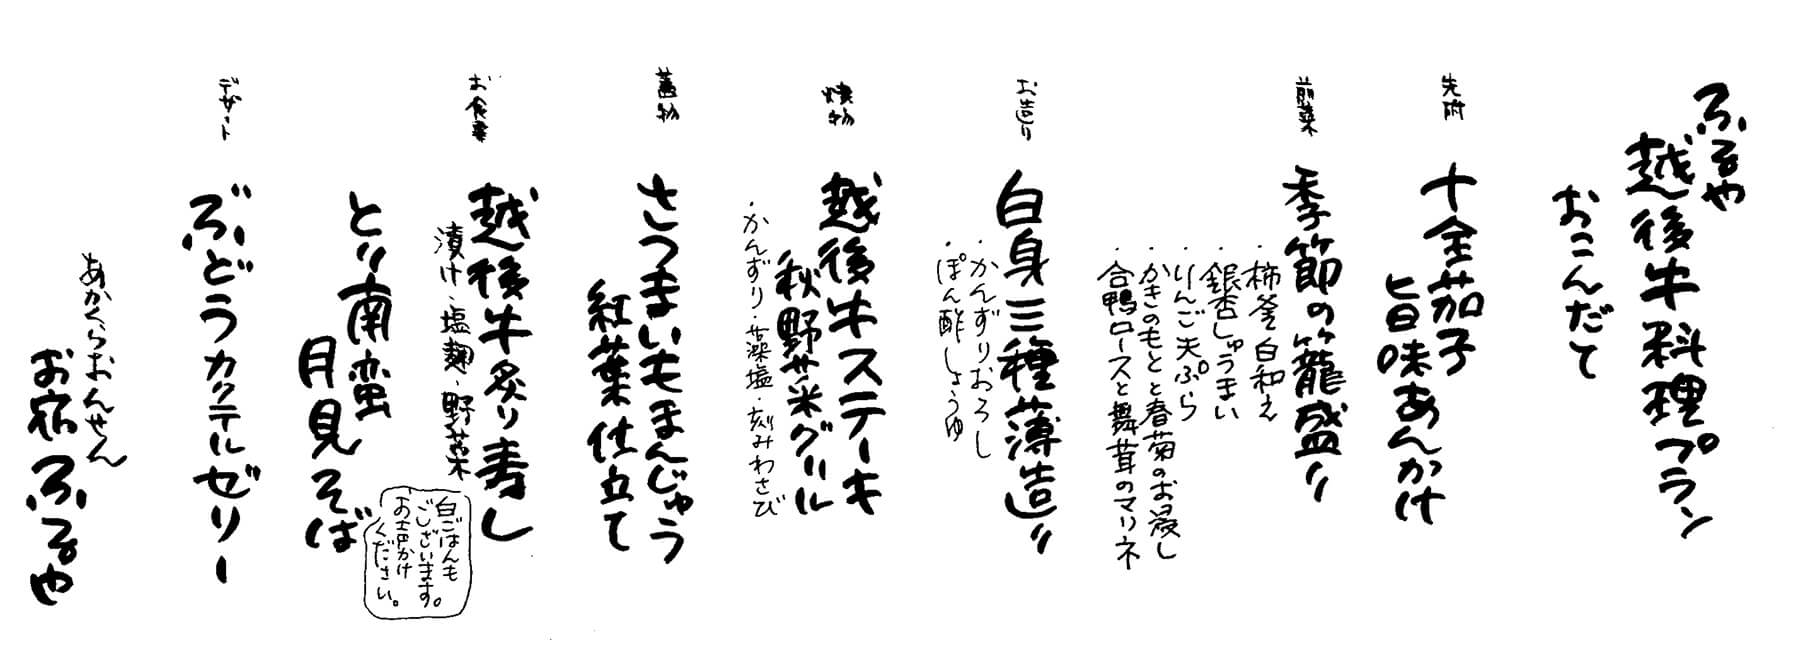 ふるや
越後牛料理プラン
おこんだて
先附
十全茄子
旨味あんかけ
前菜
季節の籠盛り
・柿釜白和え
・銀杏しゅうまい
・りんご天ぷら
・かきのもとと春菊のお浸し
・合鴨ロースと舞茸のマリネ
お造り
白身三種薄造り
・かんずりおろし
・ぽん酢しょうゆ
焼物
越後牛ステーキ
秋野菜グリル
・かんずり・藻塩・刻みわさび
蓋物
さつまいもまんじゅう
紅葉仕立て
お食事
越後牛炙り寿し
漬け・塩麹・野菜
白ごはんも
ございます。
お声かけ
ください。
とり南蛮
月見そば
デザート
ぶどうカクテルゼリー
あかくらおんせん
お宿ふるや